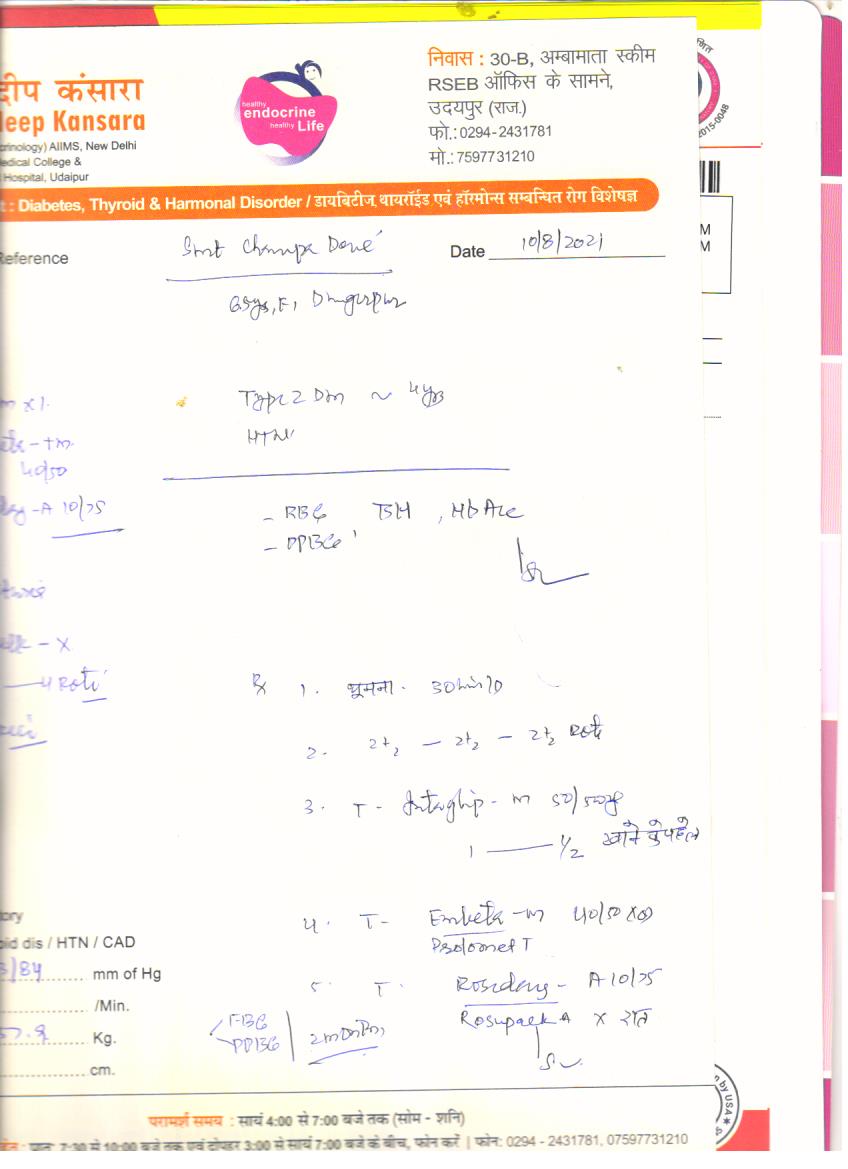 दीप कंसारा
deep Kansara
crinology) AIIMS, New Delhi
edical College &
Hospital, Udaipur
healthy
endocrine
healthy Life
निवास : 30-B, अम्बामाता स्कीम
RSEB ऑफिस के सामने,
उदयपुर (राज.)
फो.: 0294-2431781
मो.: 7597731210
2015-0048
t : Diabetes, Thyroid & Harmonal Disorder / डायबिटीज, थायरॉईड एवं हॉरमोन्स सम्बन्धित रोग विशेषज्ञ
M
M
Reference
Smt Champa Devi
Date 10/8/2021
65ys, F, Dungarpur
Type 2 DM ~ 4yrs
HTN
m x 1
- tm
40/50
-A 10/75
- RBG TSH, HbA1c
- PPBG
- x
4 Roti
Rx 1. घूमना. 30min/D
2. 2+2 - 2+2 - 2+2 Roti
3. T- - m 50/500
1 — 1/2 खाने के पहले
4. T- Embeta - m 40/50 x OD
Prolomet T
5. T. Rosuday - A 10/75
Rosupack A x रात
FBG
PPBG
2 months
ory
oid dis / HTN / CAD
/84 mm of Hg
/Min.
Kg.
cm.
n by USA
परामर्श समय : सायं 4:00 से 7:00 बजे तक (सोम - शनि)
प्रातः 7:30 से 10:00 बजे तक एवं दोपहर 3:00 से सायं 7:00 बजे के बीच, फोन करें | फोन: 0294 - 2431781, 07597731210